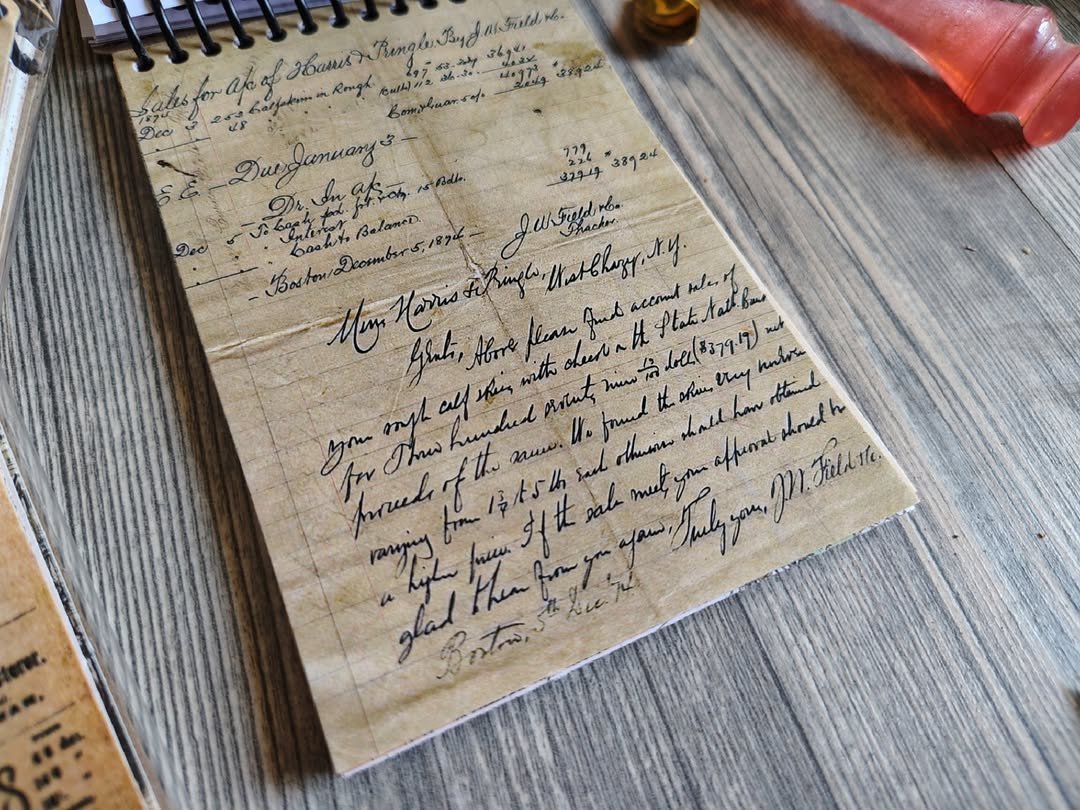 Sales for A/c of Harris & Pringle By J.W. Field & Co.
1874
Dec 3 252 Calfskins in Rough 697 53.
48 Culls 112 36.30 4034
40973
Commission 5% 2049 " 38924
E.E. - Due January 3 -
- Dr. In A/c -
Dec 5 To Cash pd. frt. & Chg. 15 Bdls. 779
" Interest 226
" Cash to Balance 37919 " 38924
- Boston, December 5, 1874 -
J W Field & Co.
Mess Harris & Pringle, West Chazy, N.Y.
Gents, Above please find account sales of
your rough calf skins with check on the State Natl. Bank
for Three hundred seventy nine 19/100 doll ($379.19) net
proceeds of the same. We found the skins very uneven
varying from 1 3/4 to 5 lbs each otherwise should have obtained
a higher price. If the sales meets your approval should be
glad to hear from you again, Truly yours, J.W. Field & Co.
Boston, 5th Dec. '74